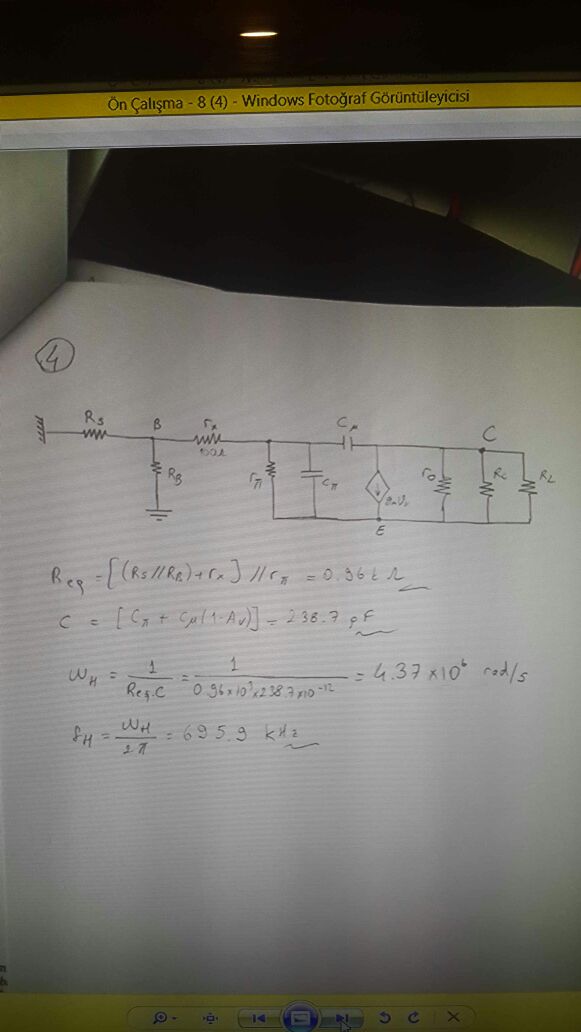 Ön Çalışma - 8 (4) - Windows Fotoğraf Görüntüleyicisi
4
Rs B rx Cμ C
100Ω
RB rπ Cπ gmVπ ro Rc RL
E
Req = [(Rs//RB)+rx]//rπ = 0.96k Ω
C = [Cπ + Cμ(1-Av)] = 238.7 pF
ωH = 1/(Req.C) = 1/(0.96x10³x238.7x10⁻¹²) = 4.37x10⁶ rad/s
fH = ωH/2π = 695.9 kHz